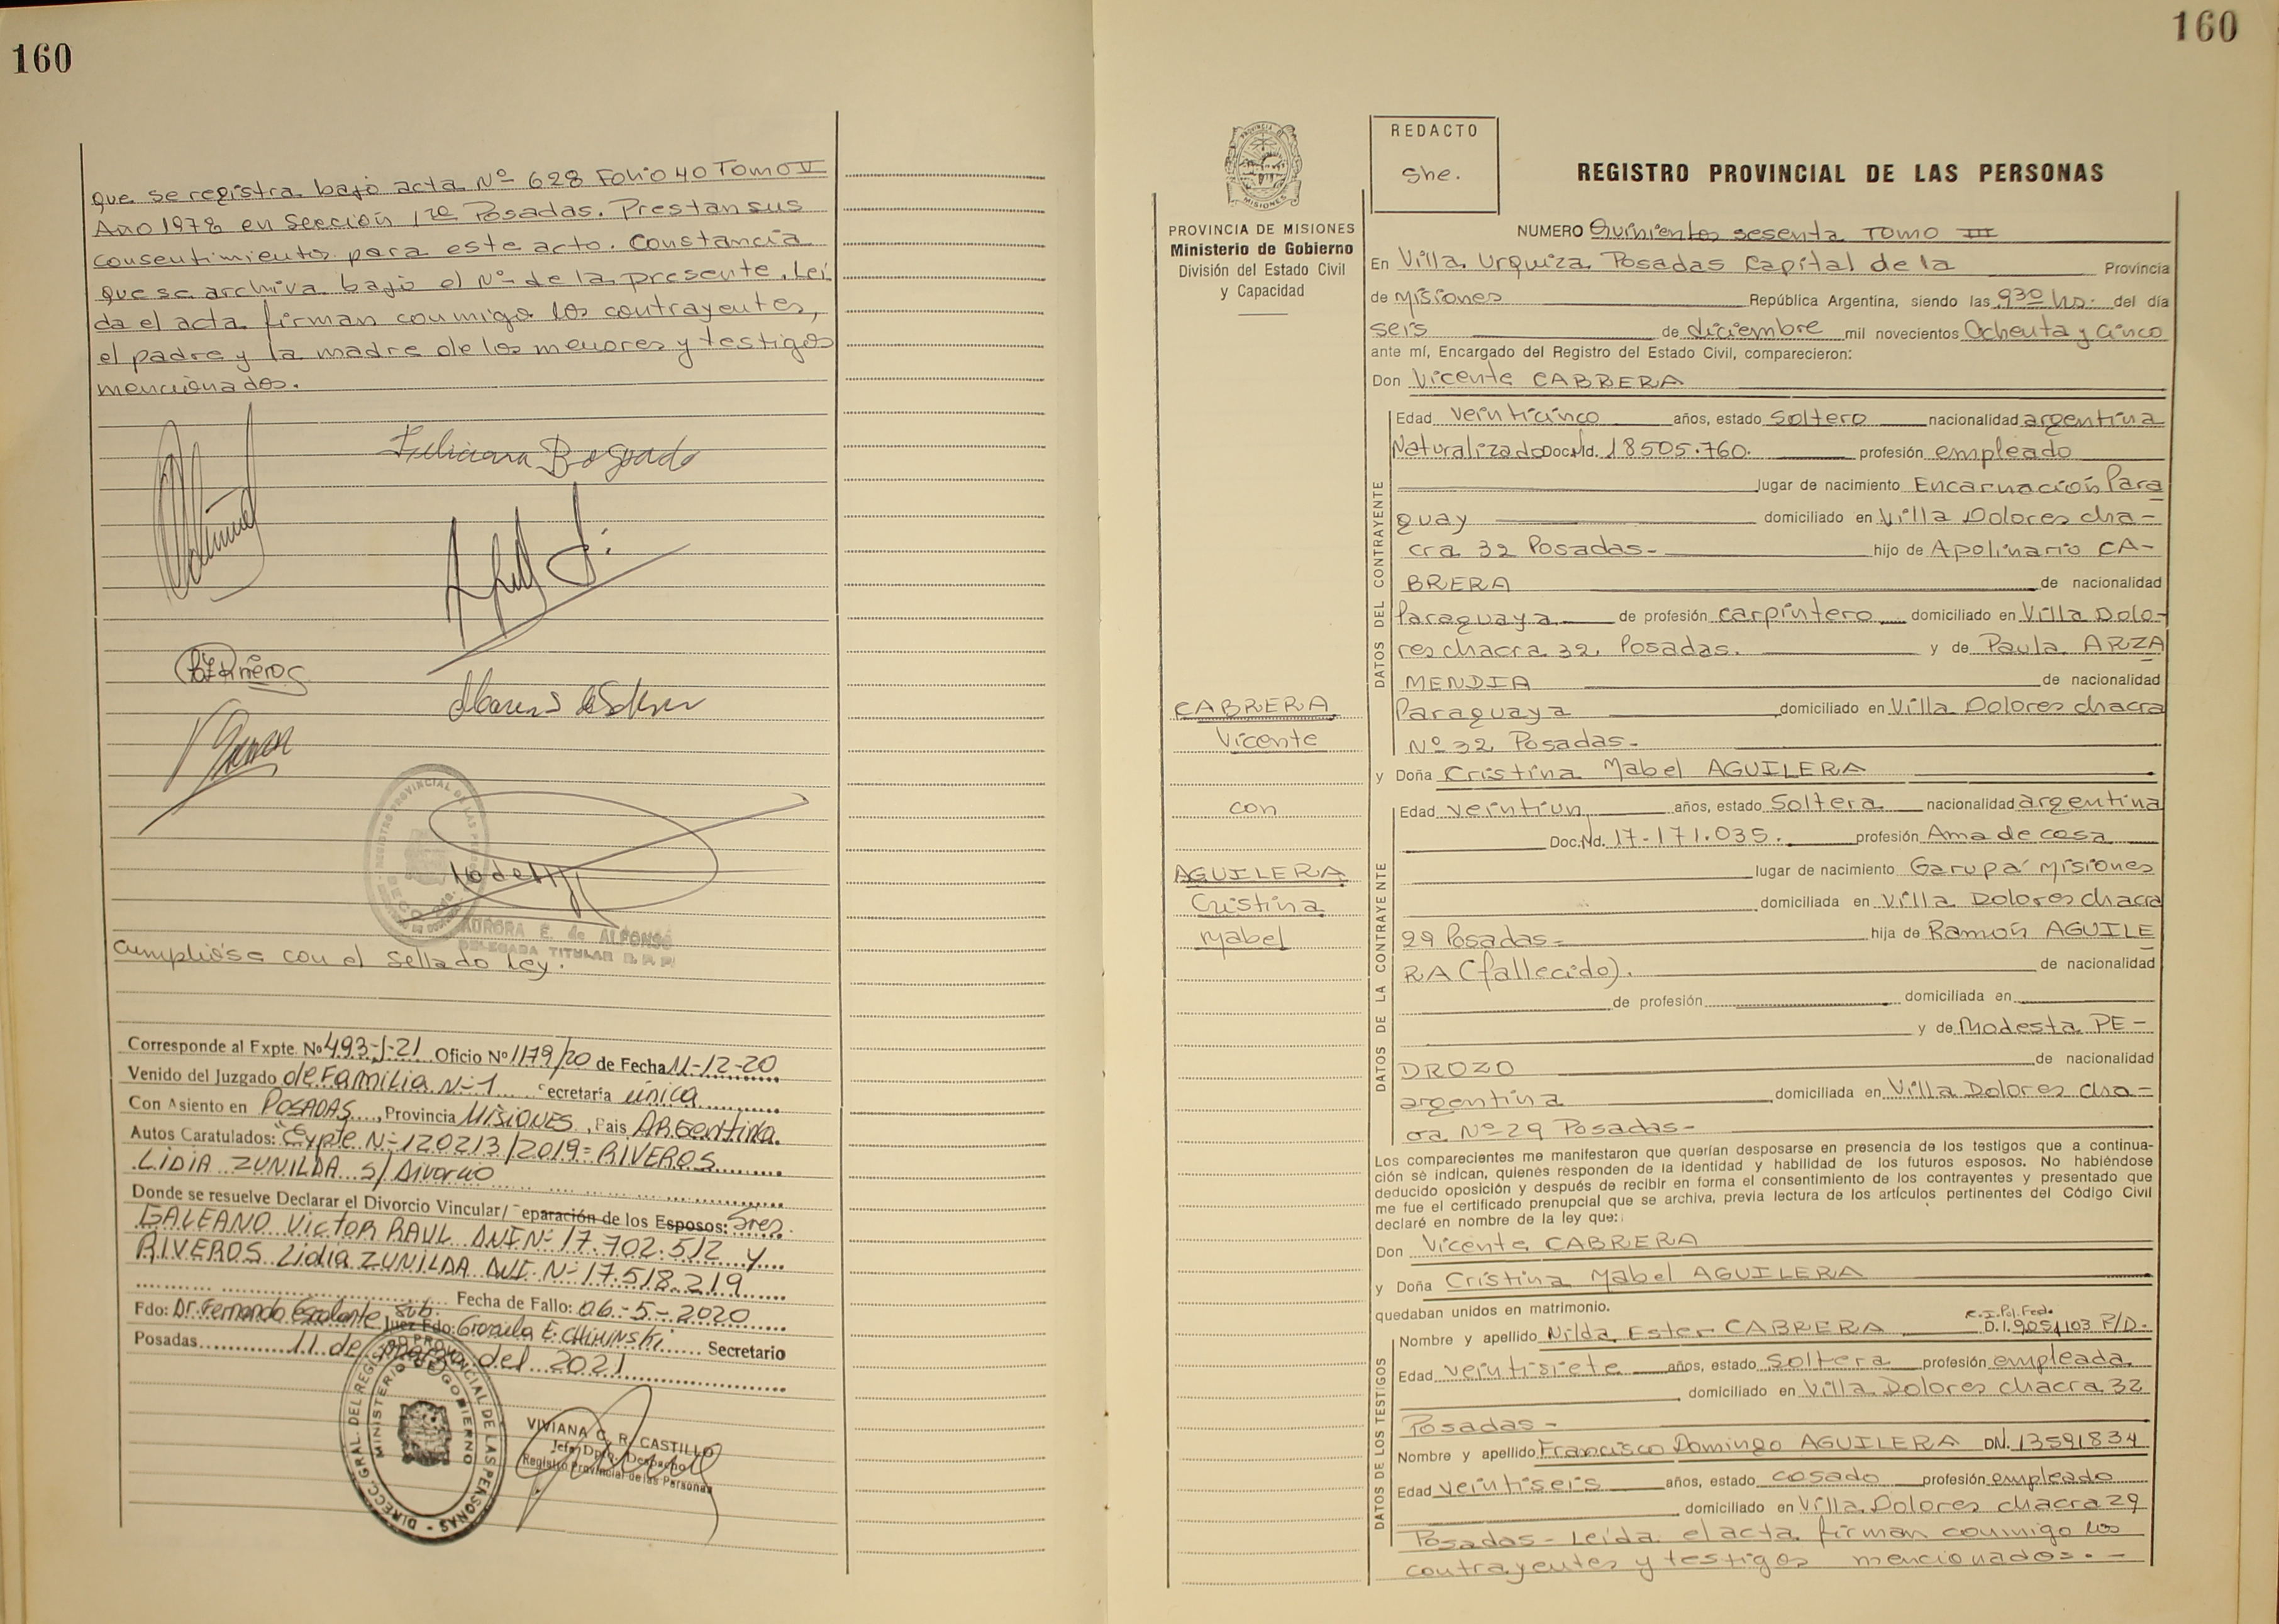 160
que se registra bajo acta Nº 628 Folio 40 Tomo II
Año 1978 en Sección 1ra Posadas. Prestan sus
consentimientos para este acto. Constancia
que se archiva bajo el Nº de la presente. Leí
da el acta firman conmigo los contrayentes,
el padre y la madre de los menores y testigos
mencionados.
Feliciana Bogado
Riveros
REGISTRO PROVINCIAL DE LAS PERSONAS
AURORA E. de ALFONSO
DELEGADA TITULAR R. P. P.
Cumplióse con el Sellado Ley.
Corresponde al Expte. Nº 493-J-21 Oficio Nº 1179/20 de Fecha 11-12-20
Venido del Juzgado de Familia Nº 1 ecretaría única
Con Asiento en POSADAS, Provincia MISIONES, Pais ARGENTINA.
Autos Caratulados: "Expte Nº 120213/2019= RIVEROS
LIDIA ZUNILDA s/ Divorcio
Donde se resuelve Declarar el Divorcio Vincular/ eparación de los Esposos: Sres.
GALEANO VICTOR RAUL DNI Nº 17.702.512 y
RIVEROS Lidia ZUNILDA DNI Nº 17.518.219
Fecha de Fallo: 06-5-2020
Fdo: Dr. Fernando Escalante Sub. Juez Fdo: Graciela E. CHININSKI Secretario
Posadas 11 de marzo del 2021
DIRECC. GRAL. DEL REGISTRO PROVINCIAL DE LAS PERSONAS
MINISTERIO DE GOBIERNO
VIVIANA C. R. CASTILLO
Jefa Dpto. Despacho
Registro Provincial de las Personas
160
PROVINCIA DE MISIONES
Ministerio de Gobierno
División del Estado Civil
y Capacidad
CABRERA
Vicente
con
AGUILERA
Cristina
Mabel
REDACTO
She.
REGISTRO PROVINCIAL DE LAS PERSONAS
NUMERO Quinientos sesenta TOMO III
En Villa Urquiza Posadas Capital de la Provincia
de Misiones República Argentina, siendo las 930 hs. del día
seis de diciembre mil novecientos Ochenta y Cinco
ante mí, Encargado del Registro del Estado Civil, comparecieron:
Don Vicente CABRERA
DATOS DEL CONTRAYENTE
Edad veinticinco años, estado Soltero nacionalidad argentina
Naturalizado Doc. Nd. 18505.760. profesión empleado
lugar de nacimiento Encarnación Para
guay domiciliado en Villa Dolores cha-
cra 32 Posadas- hijo de Apolinario CA-
BRERA de nacionalidad
Paraguaya de profesión carpintero domiciliado en Villa Dolo-
res chacra 32. Posadas. y de Paula ARZA
MENDIA de nacionalidad
Paraguaya domiciliado en Villa Dolores chacra
Nº 32 Posadas-
y Doña Cristina Mabel AGUILERA
DATOS DE LA CONTRAYENTE
Edad veintiun años, estado Soltera nacionalidad argentina
Doc. Nd. 17-171.035. profesión Ama de casa
lugar de nacimiento Garupá Misiones
domiciliada en Villa Dolores chacra
29 Posadas- hija de Ramón AGUILE
RA (fallecido). de nacionalidad
de profesión domiciliada en
y de Modesta PE-
DROZO de nacionalidad
argentina domiciliada en Villa Dolores cha-
cra Nº 29 Posadas-
Los comparecientes me manifestaron que querían desposarse en presencia de los testigos que a continua-
ción se indican, quienes responden de la identidad y habilidad de los futuros esposos. No habiéndose
deducido oposición y después de recibir en forma el consentimiento de los contrayentes y presentado que
me fue el certificado prenupcial que se archiva, previa lectura de los artículos pertinentes del Código Civil
declaré en nombre de la ley que:
Don Vicente CABRERA
y Doña Cristina Mabel AGUILERA
quedaban unidos en matrimonio.
DATOS DE LOS TESTIGOS
C.I. Pol. Fed.
Nombre y apellido Nilda Ester CABRERA D.I. 9051103 P/D-
Edad veintisiete años, estado Soltera profesión empleada
domiciliado en Villa Dolores chacra 32
Posadas-
Nombre y apellido Francisco Domingo AGUILERA DN. 13591834
Edad veintiseis años, estado casado profesión empleado
domiciliado en Villa Dolores chacra 29
Posadas- Leída el acta firman conmigo los
contrayentes y testigos mencionados.-